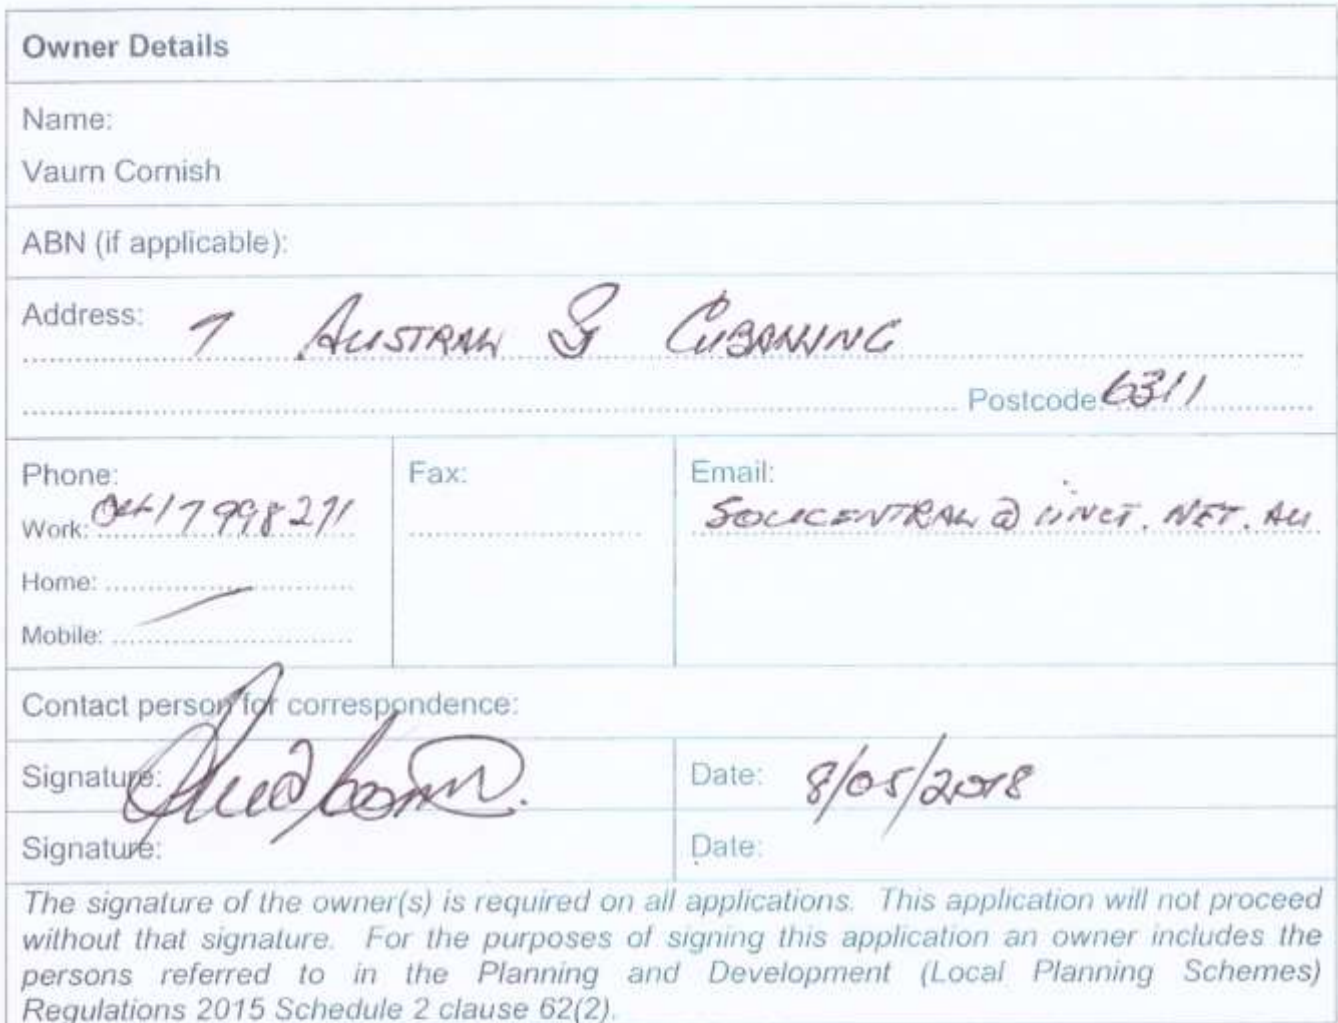 Owner Details
Name:
Vaurn Cornish
ABN (if applicable):
Address: 7 AUSTRAL St CUBALLING
Postcode 6311
Phone:
Fax:
Email:
Work: 0417998271
SOLICENTRAL@iiNET.NET.AU
Home:
Mobile:
Contact person for correspondence:
Signature:
Date: 8/05/2018
Signature:
Date:
The signature of the owner(s) is required on all applications. This application will not proceed
without that signature. For the purposes of signing this application an owner includes the
persons referred to in the Planning and Development (Local Planning Schemes)
Regulations 2015 Schedule 2 clause 62(2).